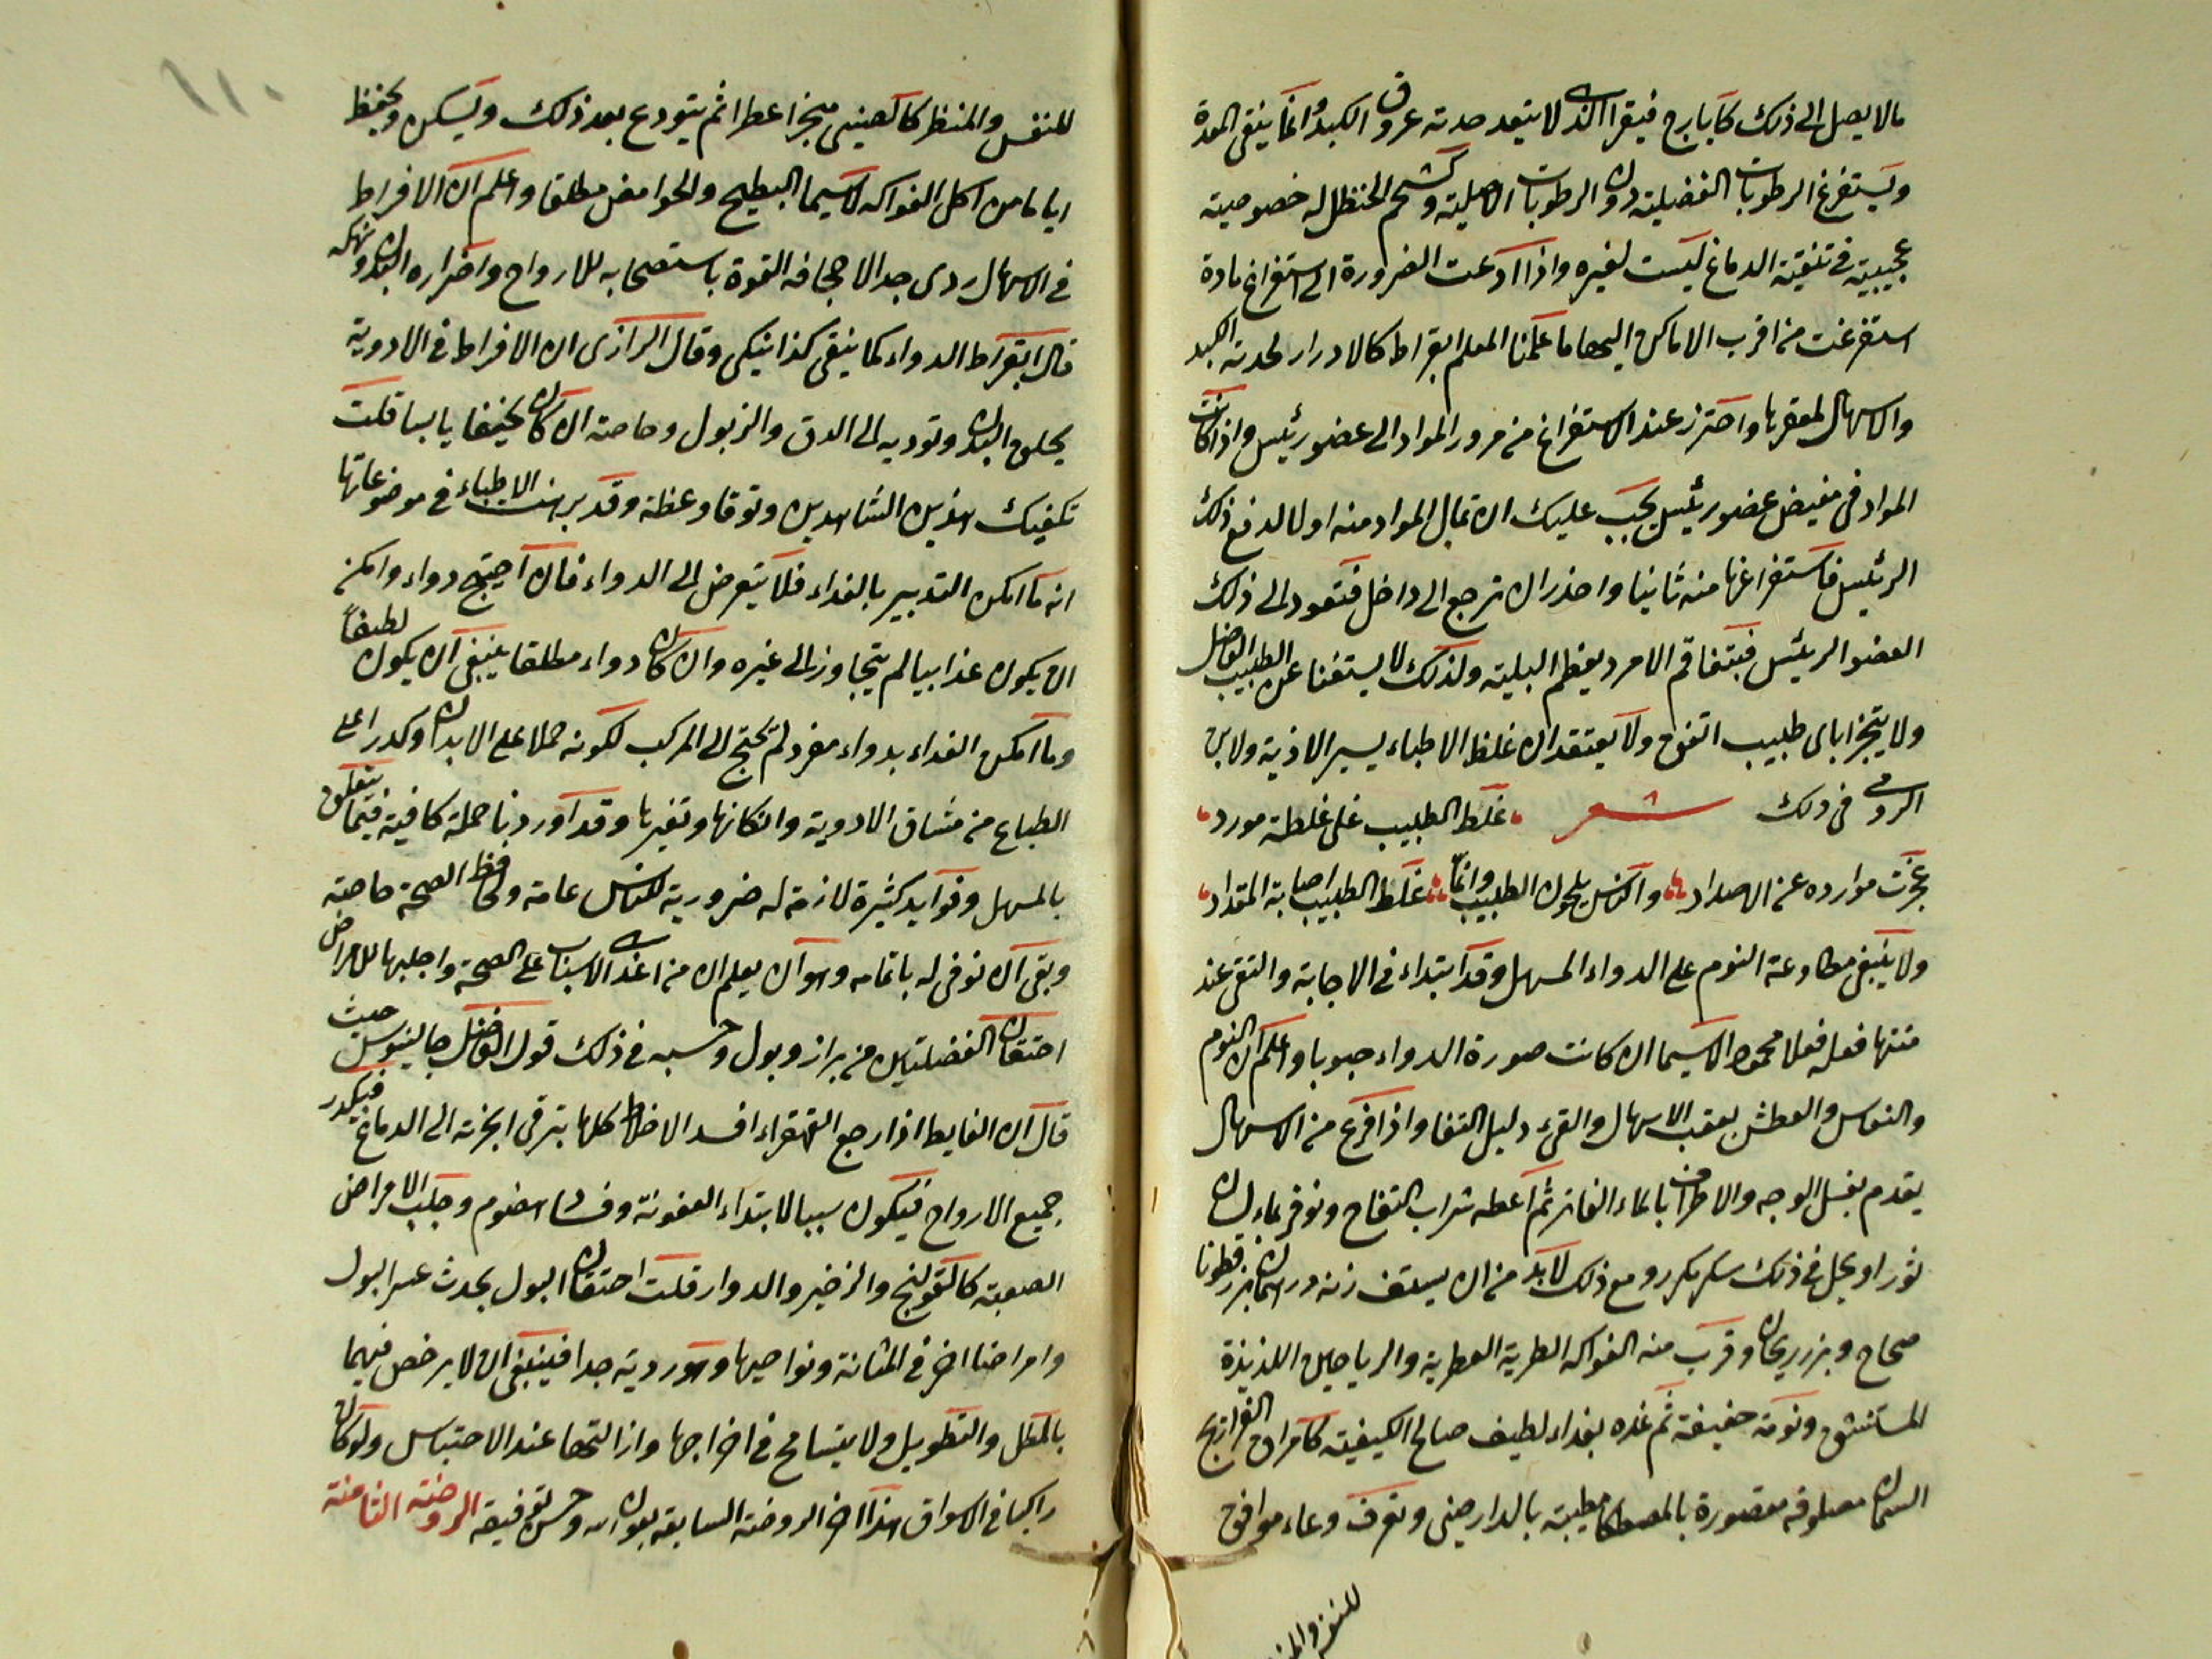 مالا يصل الى ذلك كايارج فيقرا الذى لا يتعد حدته عروق الكبد وانما ينقى المعدة
ويستفرغ الرطوبات الفضلية دون الرطوبات الاصلية وكشحم الحنظل له خصوصية
عجيبة فى تنقية الدماغ ليست لغيره واذا ادعت الضرورة الى استفراغ مادة
استفرغت من اقرب الاماكن اليها ما علمنا المعلم ابقراط كالادرار لحدبة الكبد
والاسهال لمقعرها واحترز عند الاستفراغ من مرور المواد الى عضو رئيس واذا كانت
المواد فى مغيض عضو رئيس يجب عليك ان تمال المواد منه اولا لدفع ذلك
الرئيس فاستفراغها منه ثانيا واحذر ان ترجع الى داخل فتعود الى ذلك
العضو الرئيس فيتفاقم الامر ويعظم البلية ولذلك لا يستغنا عن الطبيب الفاضل
ولا يتجزا باى طبيب اتفق ولا يعتقد ان غلظ الاطباء يسير الاذية ولابن
الرومى فى ذلك شعر غلط الطبيب على غلطة مورد
عجزت موارده عن الاصدار والناس يلحون الطبيب وانما غلط الطبيب اصابة المقدار
ولا ينبغى مطاوعة النوم على الدواء المسهل وقد ابتداء فى الاجابة والتقى عند
منتها فعله فعلا محمودا لاسيما ان كانت صورة الدواء حبوبا واعلم ان النوم
والنعاس والعطش بعقب الاسهال والقىء دليل النقا واذا فرغ من الاسهال
يقدم بغسل الوجه والاطراف بالماء الفاتر ثم اعطه شراب التفاح ونوفر بماء لسان
ثور او يجل فى ذلك سكر مكرر ومع ذلك لابد من ان يستف زنة درهمان بزر قطونا
صحاح وبزر ريحان وقرب منه الفواكه الطرية العطرية والرياحين اللذيذة
المستنشق ونومة خفيفة ثم غده بغداء لطيف صالح الكيفية كامراق الفراريج
السمان مصلوقة مقصورة بالمصطكا مطيبة بالدارصينى وتعرف وعاء موافق
للنفس والمنظر
للنفس والمنظر كالصينى مبخرا عطرا ثم يتودع بعد ذلك ويسكن ويحفظ
اياما من اكل الفواكه لاسيما البطيح والحوامض مطلقا واعلم ان الافراط
فى الاسهال ردى جدا لاجحافه القوة باستصحابه للارواح واضراره البدن ونهكه
قال ابقراط الدواء كما ينقى كذا ينكى وقال الرازى ان الافراط فى الادوية
يخلق البدن وتوديه الى الدق والزبول وخاصة ان كان نحيفا يابسا قلت
تكفيك هذين الشاهدين وتوقا وعظة وقد برهنت الاطباء فى موضوعاتها
انه ما امكن التدبير بالغداء فلا يتعرض الى الدواء فان احتيج دواء وامكن
ان يكون غذاييا لم يتجاوز الى غيره وان كان دواء مطلقا ينبغى ان يكون لطيفا
وما امكن الغداء بدواء مفرد لم يحتج الى المركب لكونه حملا على الابدان وكدرا على
الطباع من مشاق الادوية وانكانها وتغيرها وقد اوردنا جملة كافية فيما يتعلق
بالمسهل وفوايد كثيرة لازمة له ضرورية للناس عامة ولحافظ الصحة خاصة
وبقى ان نوفى له باتمامه وهو ان يعلم ان من اعدى الاسباب على الصحة واجلبها للامراض
احتقان الفضلتين من براز وبول وحسبه فى ذلك قول الفاضل جالينوس حيث
قال ان الغايط اذا رجع القهقراء افسد الاخلاط كلها بترقى ابخرته الى الدماغ فيكدر
جميع الارواح فيكون سببا لابتداء العفونة وفساد الهضوم وجلب الامراض
الصعبة كالقولنج والزخير والدوار قلت احتقان البول يحدث عسر البول
وامراضا اخر فى المثانة ونواحيها وهو ردية جدا فينبغى ان لا يرخص فيهما
بالمطل والتطويل ولا يتسامح فى اخراجها وازالتها عند الاحتباس ولو كان
راكبا فى الاسواق هذا اخر الروضة السابعة بعون الله وحسن توفيقه الروضة الثامنة
١١٠